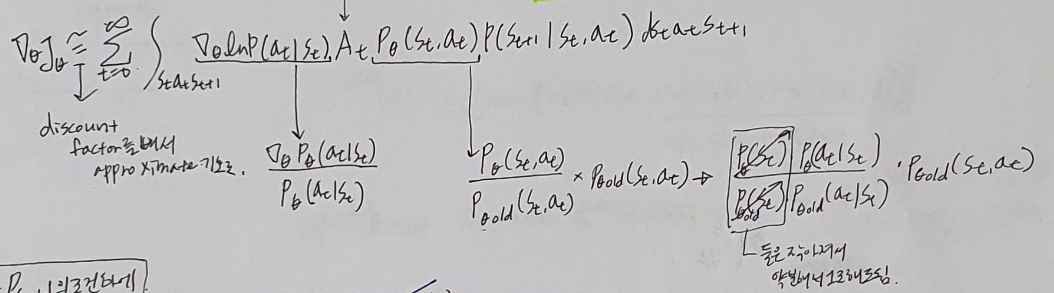 ∇θJθ ≅ ∑_{t=0}^{∞} ∫_{St at St+1} ∇θ ln P(at|St) At Pθ(St, at) P(St+1|St, at) dSt at St+1
discount
factor를 빼서
approximate 기호로.
∇θ Pθ(at|St) / Pθ(at|St)
Pθ(St, at) / Pθold(St, at) × Pθold(St, at) → Pθ(St) Pθ(at|St) / Pθold(St) Pθold(at|St) · Pθold(St, at)
둘은
약분해서 1로 해도됨.
의 조건하에